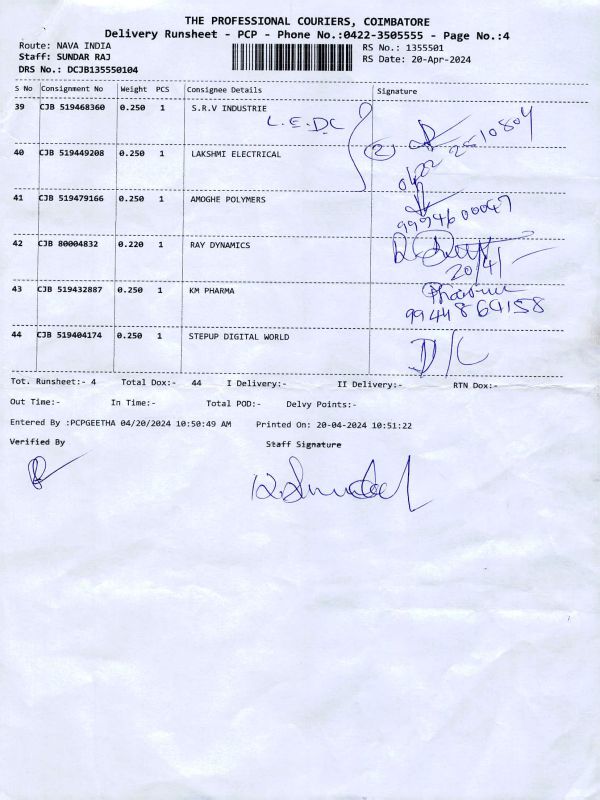 THE PROFESSIONAL COURIERS, COIMBATORE
Delivery Runsheet - PCP - Phone No.:0422-3505555 - Page No.:4
Route: NAVA INDIA RS No.: 1355501
Staff: SUNDAR RAJ RS Date: 20-Apr-2024
DRS No.: DCJB135550104
S No Consignment No Weight PCS Consignee Details Signature
39 CJB 519468360 0.250 1 S.R.V INDUSTRIE
L.E.DC
40 CJB 519449208 0.250 1 LAKSHMI ELECTRICAL (2)
41 CJB 519479166 0.250 1 AMOGHE POLYMERS
9994600047
42 CJB 80004832 0.220 1 RAY DYNAMICS
20/4/
43 CJB 519432887 0.250 1 KM PHARMA
9944864158
44 CJB 519404174 0.250 1 STEPUP DIGITAL WORLD D/C
Tot. Runsheet:- 4 Total Dox:- 44 I Delivery:- II Delivery:- RTN Dox:-
Out Time:- In Time:- Total POD:- Delvy Points:-
Entered By :PCPGEETHA 04/20/2024 10:50:49 AM Printed On: 20-04-2024 10:51:22
Verified By Staff Signature